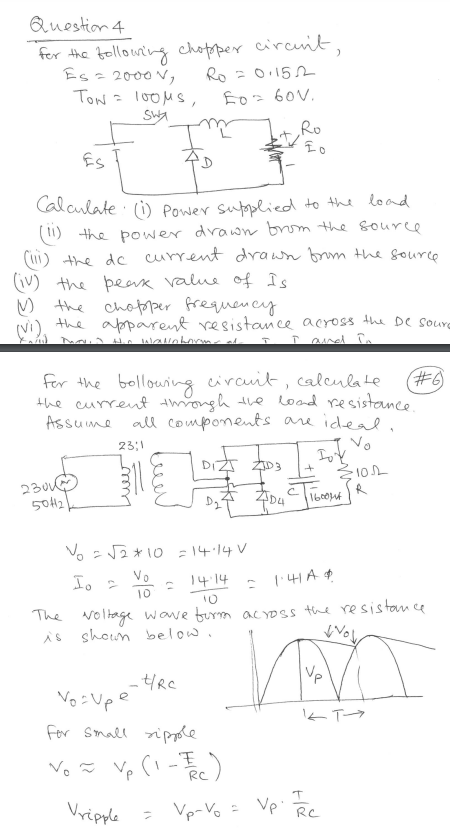 Question 4
For the following chopper circuit,
Es = 2000 V, Ro = 0.15Ω
TON = 100μs, Eo = 60V.
SW
L
D
Es
+
Ro
Eo
-
Calculate: (i) Power supplied to the load
(ii) the power drawn from the source
(iii) the dc current drawn from the source
(iv) the peak value of Is
(v) the chopper frequency
(vi) the apparent resistance across the DC sour
For the following circuit, calculate
#6
the current through the load resistance.
Assume all components are ideal.
23:1
230V
50Hz
D1
D3
D2
D4
+
C
1600μf
Io
Vo
10Ω
R
Vo = √2 * 10 = 14.14 V
Io = Vo/10 = 14.14/10 = 1.41 A
The voltage wave form across the resistance
is shown below.
Vo
Vp
T
Vo = Vp e^-t/RC
For small ripple
Vo ≈ Vp (1 - T/RC)
Vripple = Vp - Vo = Vp . T/RC